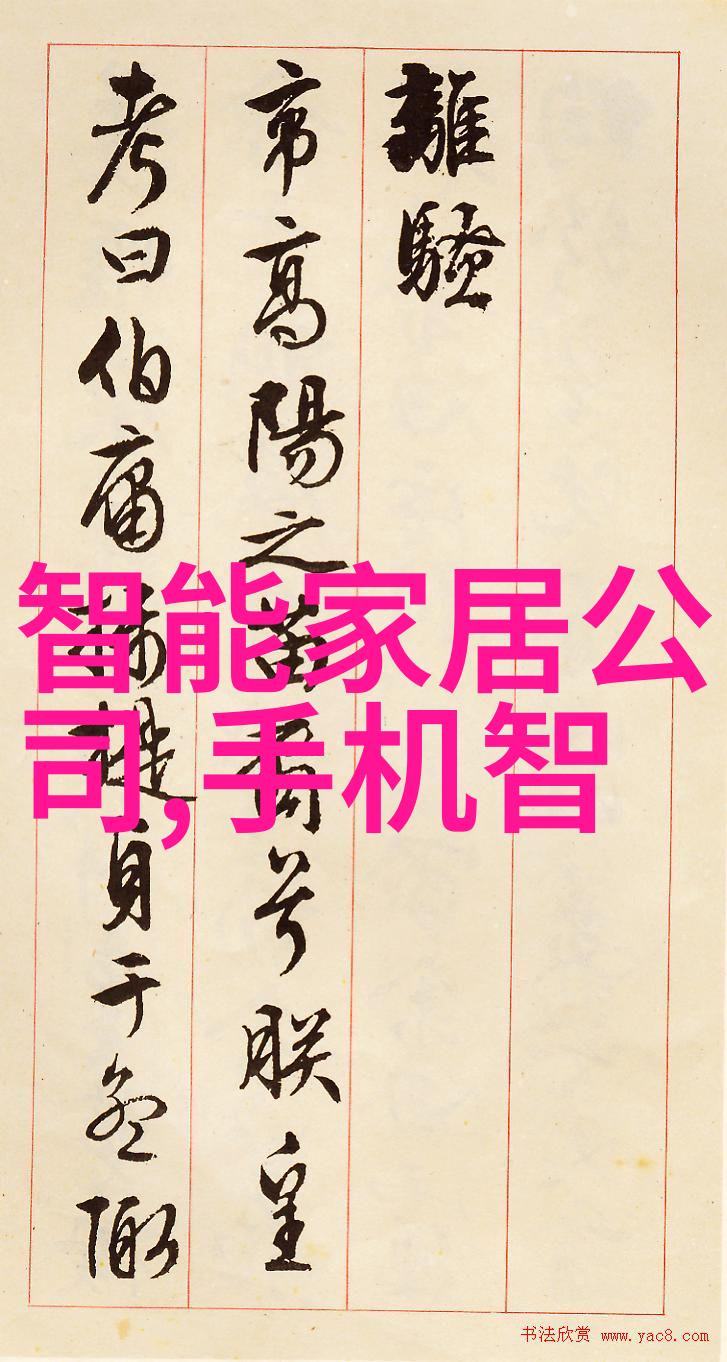 離騷
帝高陽之苗裔兮朕皇
考曰伯庸攝提貞于孟陬
智能家居公
司,手机智
书法欣赏 www.yac8.com